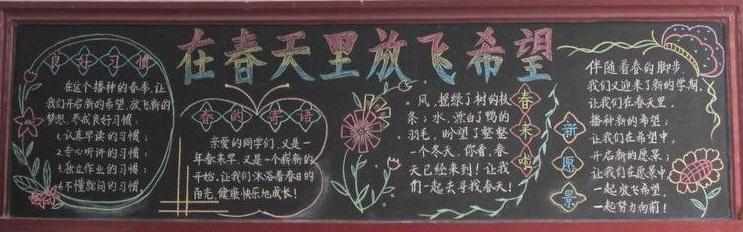 在春天里放飞希望
良好习惯
在这个播种的春季,让
我们开启新的希望,放飞新的
梦想,养成良好习惯:
1.认真早读的习惯;
2.专心听讲的习惯;
3.独立作业的习惯;
4.不懂就问的习惯。
春的寄语
亲爱的同学们,又是一
年春来早,又是一个崭新的
开始,让我们沐浴着春日的
阳光,健康快乐地成长!
春来啦
风,摇绿了树的枝
条;水,漂白了鸭的
羽毛,盼望了整整
一个冬天,你看,春
天已经来到!让我
们一起去寻找春天!
新愿景
伴随着春的脚步,
我们又迎来了新的学期,
让我们在春天里,
播种新的希望;
让我们在希望中,
开启新的愿景;
让我们在愿景中,
一起放飞希望,
一起努力向前!